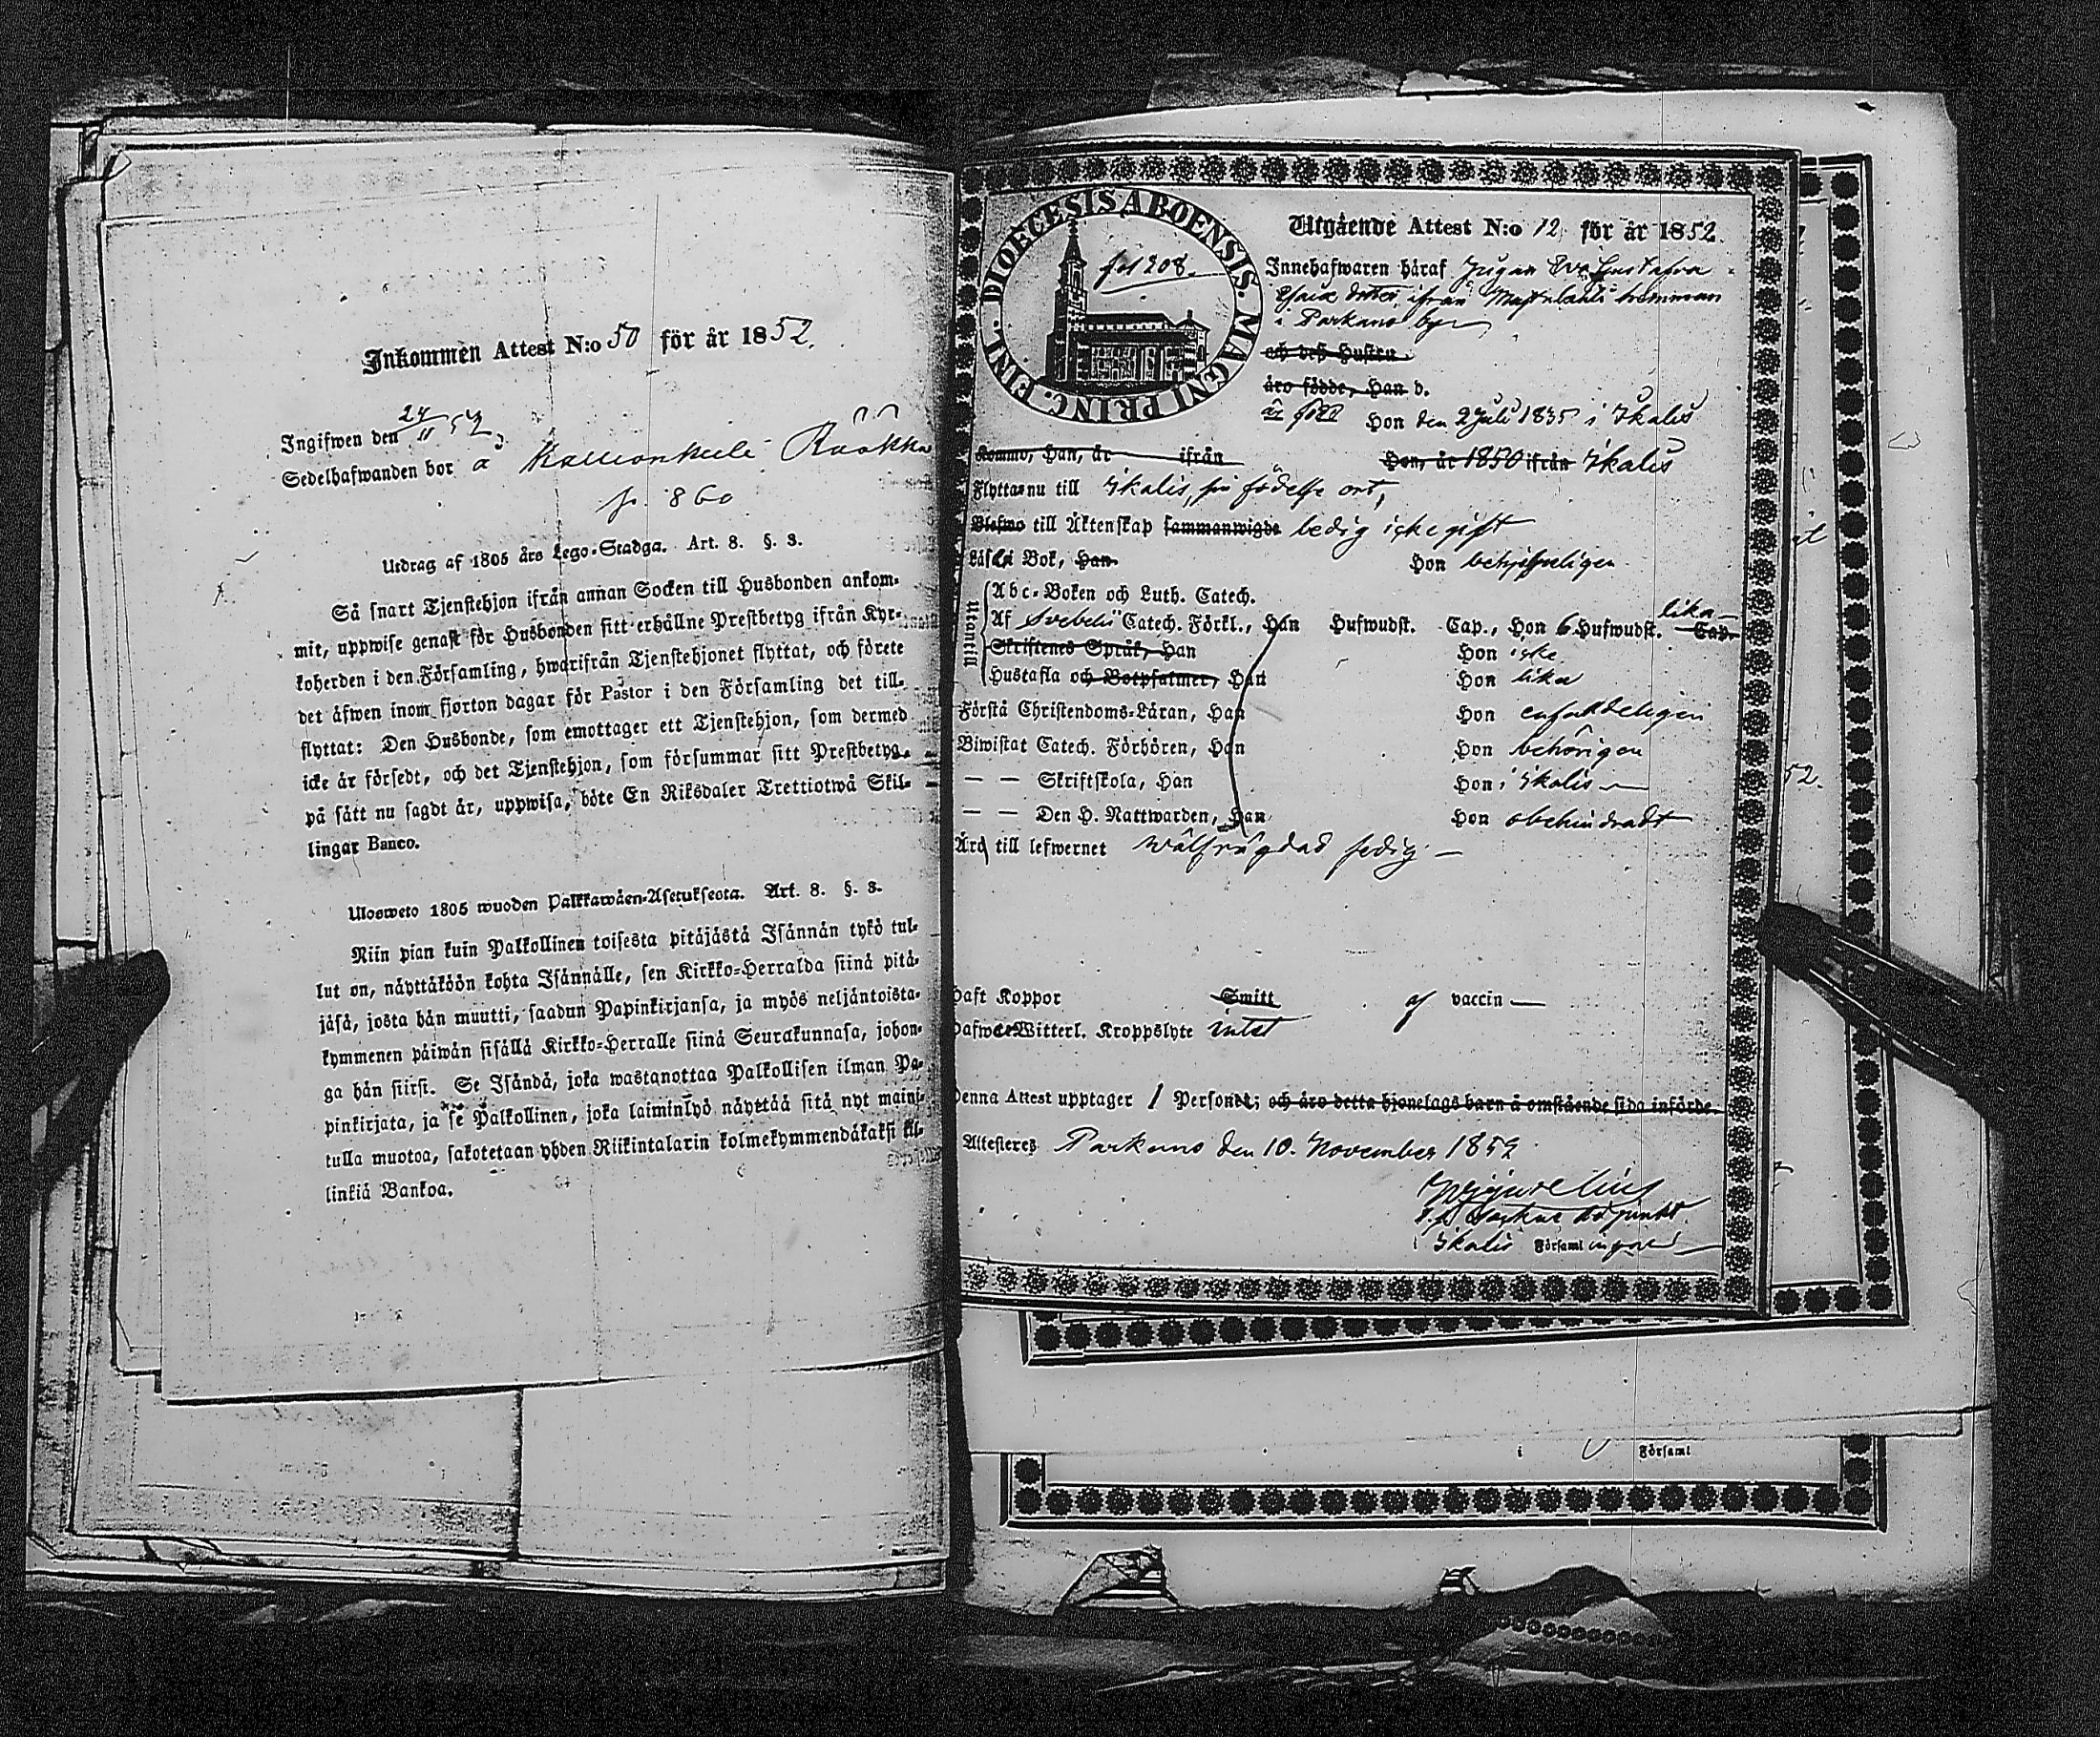 Inkommen Attest N:o 50 för år 1852.
Ingifwen den 24/11 52
Sedelhafwanden bor å
p. 860
Utdrag af 1805 års Lego-Stadga. Art. 8. §. 3.
Så snart Tjenstehjon ifrån annan Socken till Husbonden ankom-
mit, uppwise genast för Husbonden sitt erhållne Prestbetyg ifrån Kyr-
koherden i den Församling, hwarifrån Tjenstehjonet flyttat, och förete
det äfwen inom fjorton dagar för Pastor i den Församling det till-
flyttat: Den Husbonde, som emottager ett Tjenstehjon, som dermed
icke är försedt, och det Tjenstehjon, som försummar sitt Prestbetyg,
på sätt nu sagdt är, uppwisa, böte En Riksdaler Trettiotwå Skil-
lingar Banco.
Ulosweto 1805 wuoden Palkkawäen-Asetuksesta. Art. 8. §. 3.
Niin pian kuin Palkollinen toisesta pitäjästä Isännän tykö tul-
lut on, näyttäköön kohta Isännälle, sen Kirkko-Herralda siinä pitä-
jäsä, josta hän muutti, saadun Papinkirjansa, ja myös neljäntoista-
kymmenen päiwän sisällä Kirkko-Herralle siinä Seurakunnasa, johon-
ga hän siirsi. Se Isändä, joka wastanottaa Palkollisen ilman Pa-
pinkirjata, ja se Palkollinen, joka laiminlyö näyttää sitä nyt maini-
tulla muotoa, sakotetaan yhden Riikintalarin kolmekymmendäkaksi kil-
linkiä Bankoa.
DIOECESIS ABOENSIS. MAGNI PRINC. FINL.
fol 208.
Utgående Attest N:o 12 för år 1852.
Innehafwaren häraf Pigan Eva Gustafva
dotter, ifrån hemman
i Parkano by
och deß Hustru
äro födde, Han d.
är född Hon den 2 Juli 1835 i Ikalis
Kommo, Han, år ifrån Hon, år 1850 ifrån Ikalis
Flyttar nu till Ikalis, sin födelse ort,
Blefwo till Äktenskap sammanwigde ledig icke gift
Läsa i Bok, Han Hon
Utantill
Abc-Boken och Luth. Catech.
Af Svebelii Catech. Förkl., Han Hufwudst. Cap., Hon 6 Hufwudst. Cap. lika
Skriftenes Språk, Han Hon icke
Hustafla och Botpsalmer, Han Hon lika
Förstå Christendoms-Läran, Han Hon enfaldeligen
Biwistat Catech. Förhören, Han Hon behörigen
— — Skriftskola, Han Hon i Ikalis
— — Den H. Nattwarden, Han Hon obehindradt
Är till lefwernet wälfrägdad
Haft Koppor Smitt af vaccin
Hafwer Witterl. Kroppslyte intet
Denna Attest upptager 1 Person; och äro detta hjonelags barn å omstående sida införde.
Attesteres Parkano den 10. November 1852
i Ikalis Församlingar
i Församl